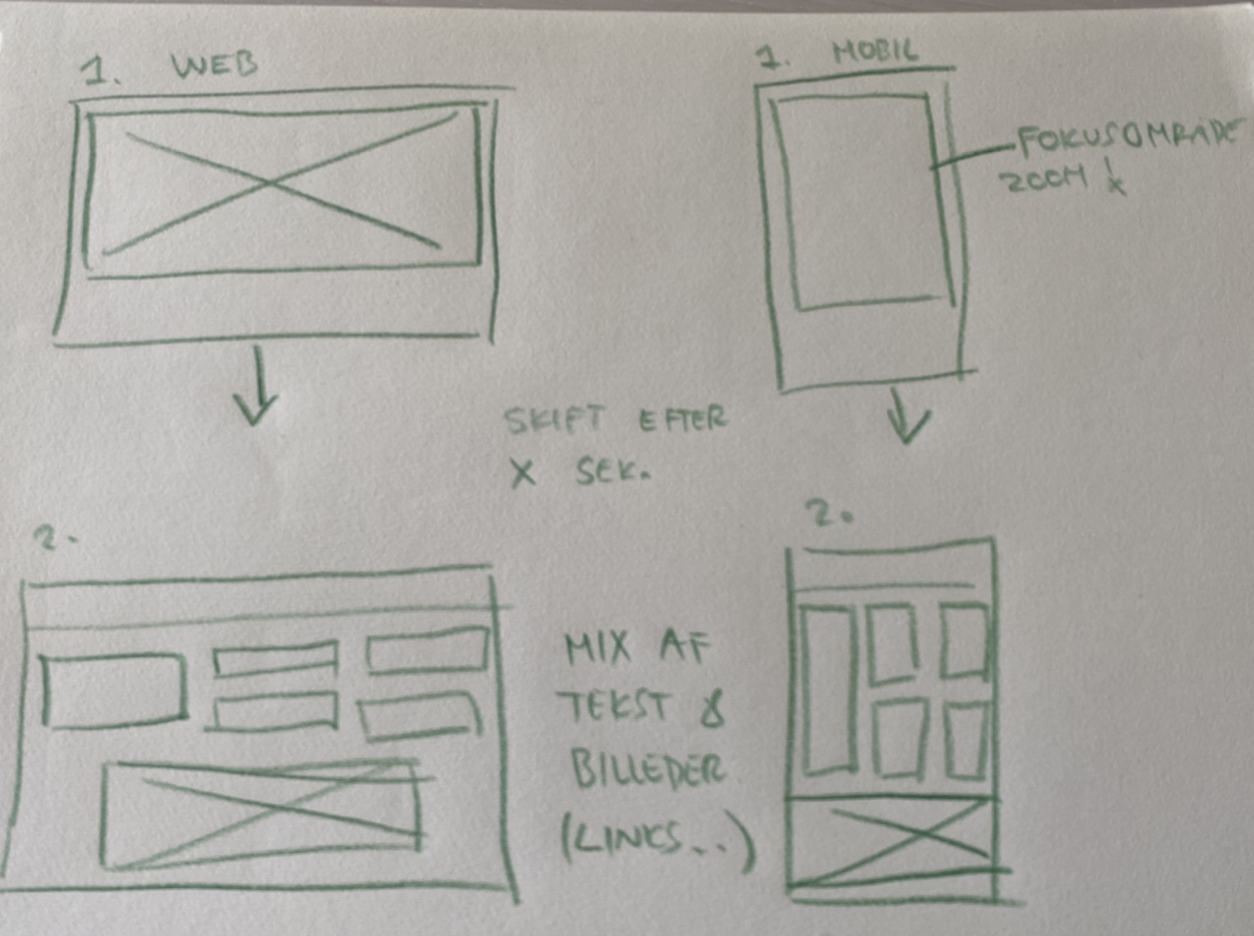 1. WEB
1. MOBIL
FOKUSOMRÅDE
ZOOM
SKIFT EFTER
X SEK.
2.
2.
MIX AF
TEKST &
BILLEDER
(LINKS...)